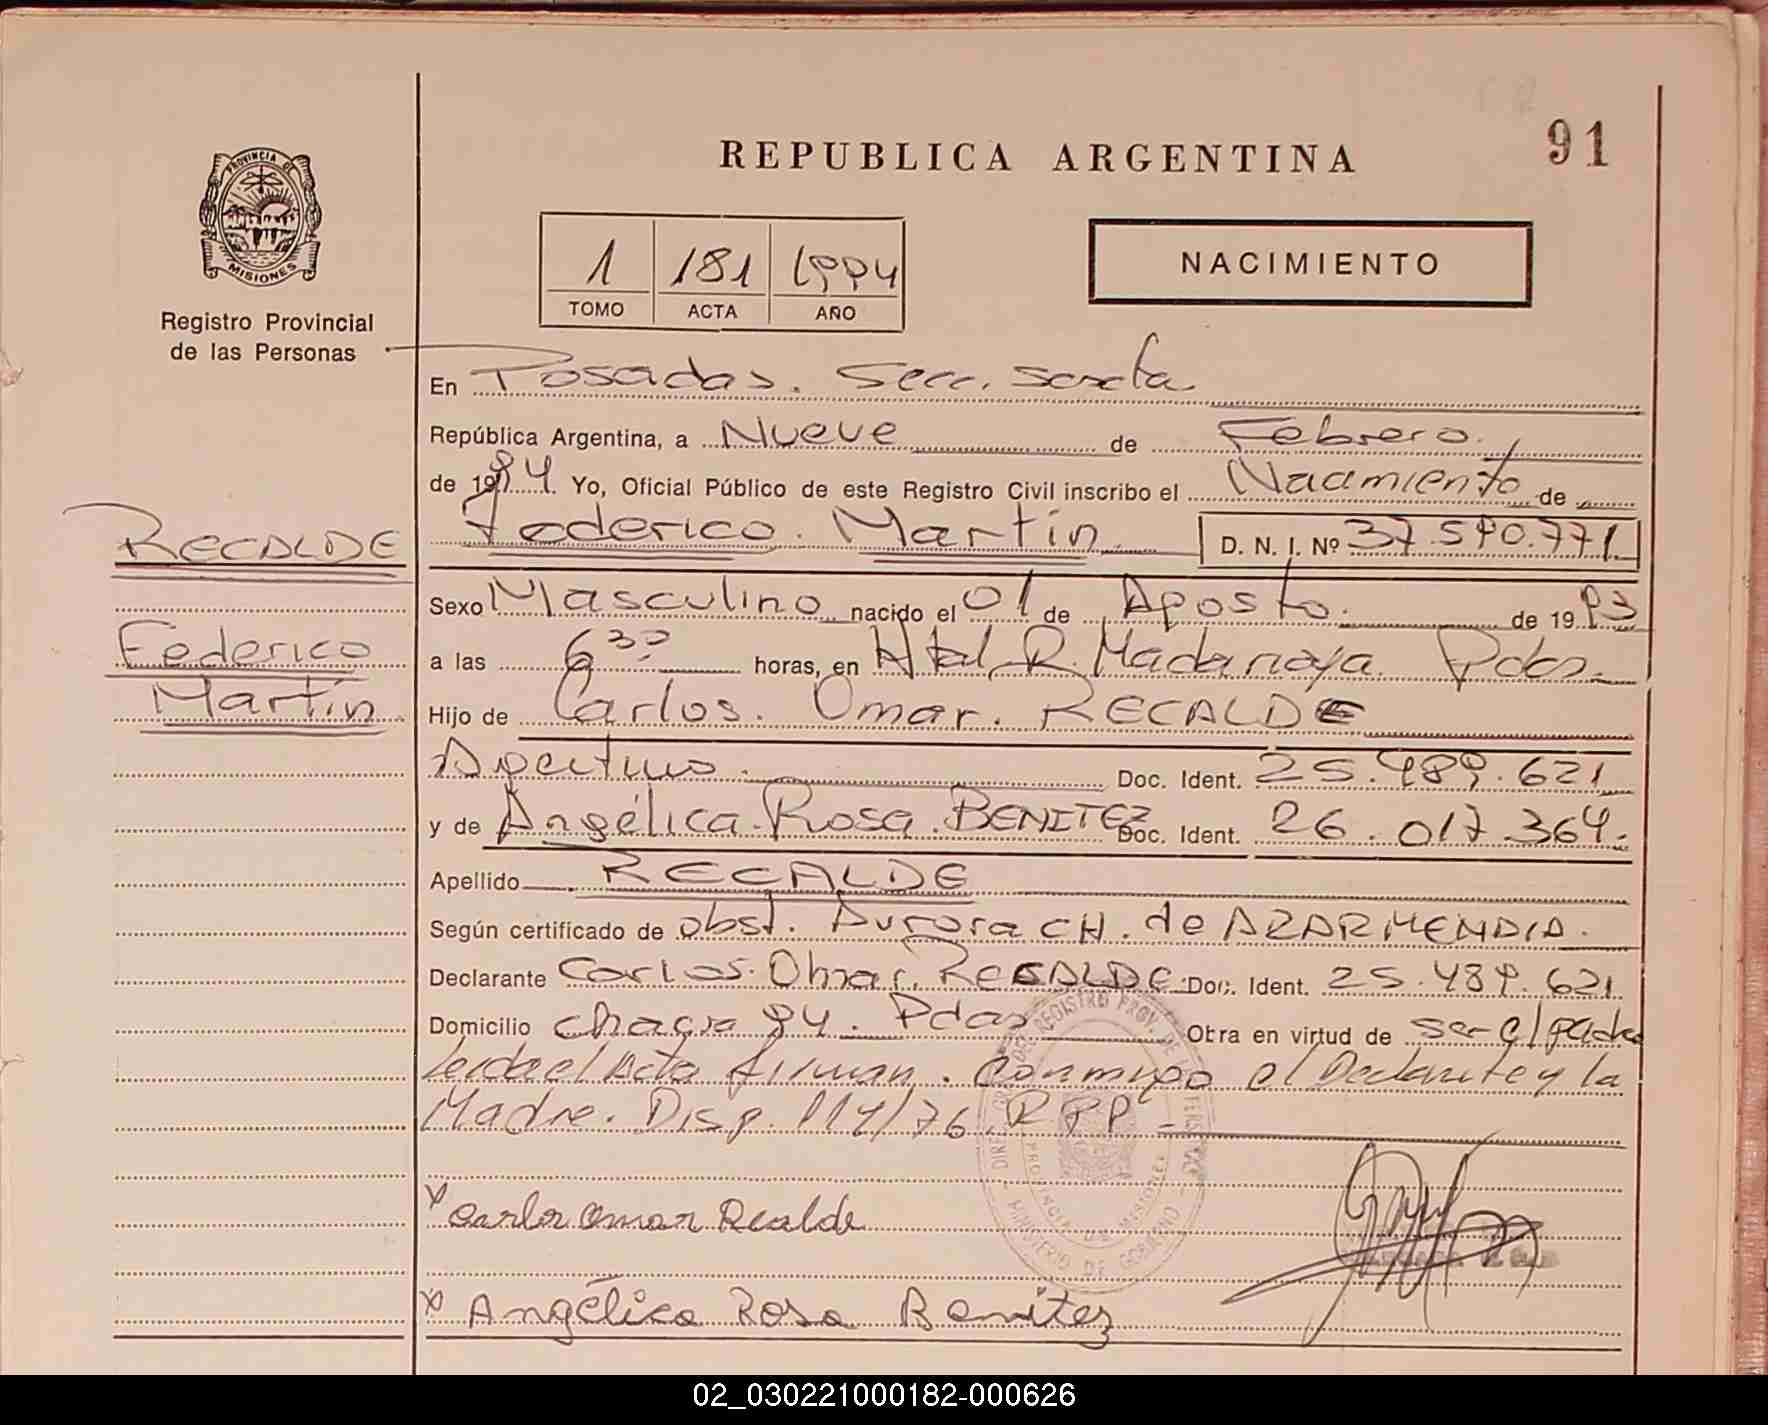 91
REPUBLICA ARGENTINA
PROVINCIA DE
MISIONES
Registro Provincial
de las Personas
1 181 1994
TOMO ACTA AÑO
NACIMIENTO
En Posadas. Secc. sexta
República Argentina, a Nueve de Febrero
de 1994 Yo, Oficial Público de este Registro Civil inscribo el Nacimiento de
RECALDE
Federico
Martín
Federico. Martín D. N. I. Nº 37.590.771
Sexo Masculino nacido el 01 de Agosto. de 1993
a las 6 30 horas, en Htal. R. Madariaga. Pdas.
Hijo de Carlos. Omar. RECALDE
Argentino. Doc. Ident. 25.489.621
y de Angélica. Rosa. BENITEZ Doc. Ident. 26.017.364.
Apellido RECALDE
Según certificado de obst. Aurora CH. de AZARMENDIA.
Declarante Carlos. Omar. RECALDE. Doc. Ident. 25.489.621
Domicilio chacra 94. Pdas Otra en virtud de ser el padre
Leida el Acta firman. Conmigo el Declarante y la
Madre. Disp. 114/76 RPP
DEL REGISTRO PROV. DE LAS PERSONAS
PROVINCIA DE MISIONES
MINISTERIO DE GOBIERNO
x Carlos Omar Recalde
x Angélica Rosa Benitez
02_030221000182-000626